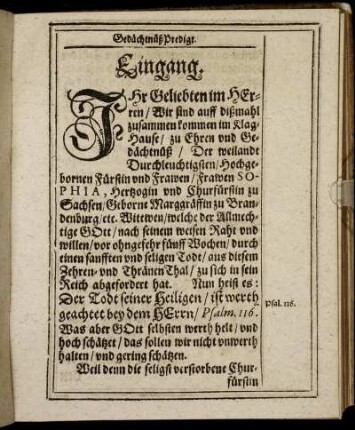 Gedächtnüß Predigt.
Eingang.
IHr Geliebten im HEr-
ren / Wir sind auff dißmahl
zusammen kommen im Klag-
Hause / zu Ehren und Ge-
dächtnüß / Der weilandt
Durchleuchtigsten / Hochge-
bornen Fürstin vnd Frawen / Frawen SO-
PHIA, Hertzogin vnd Churfürstin zu
Sachsen / Geborne Marggräffin zu Bran-
denburg / etc. Wittwen / welche der Allmech-
tige GOtt / nach seinem weisen Raht vnd
willen / vor ohngefehr fünff Wochen / durch
einen sanfften vnd seligen Todt / aus diesem
Zehren- vnd ThränenThal / zu sich in sein
Reich abgefordert hat. Nun heist es:
Der Todt seiner Heiligen / ist werth
geachtet bey dem HErrn / Psalm. 116.
Psal. 116.
Was aber GOtt selbsten werth helt / vnd
hoch schätzet / das sollen wir nicht vnwerth
halten / vnd gering schätzen.
Weil denn die seligst verstorbene Chur-
fürstin